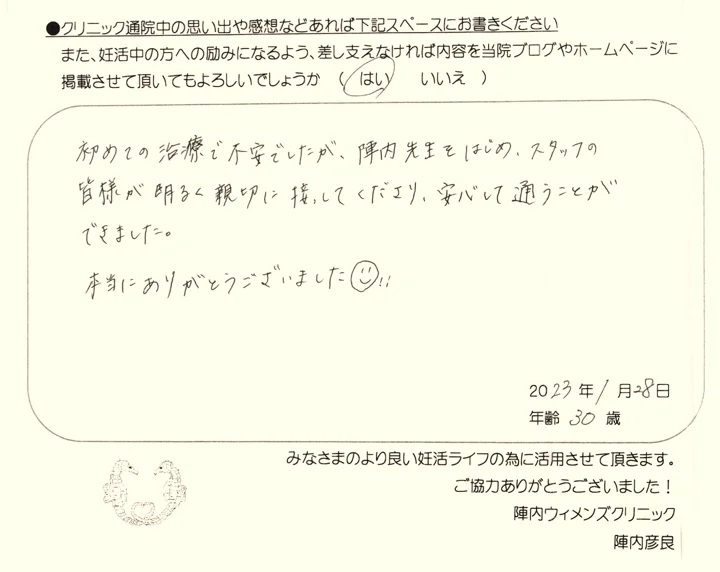 ●クリニック通院中の思い出や感想などあれば下記スペースにお書きください
また、妊活中の方への励みになるよう、差し支えなければ内容を当院ブログやホームページに
掲載させて頂いてもよろしいでしょうか （ はい　いいえ ）
初めての治療で不安でしたが、陣内先生をはじめ、スタッフの
皆様が明るく親切に接してくださり、安心して通うことが
できました。
本当にありがとうございました☺!!
2023年1月28日
年齢 30 歳
みなさまのより良い妊活ライフの為に活用させて頂きます。
ご協力ありがとうございました！
陣内ウィメンズクリニック
陣内彦良